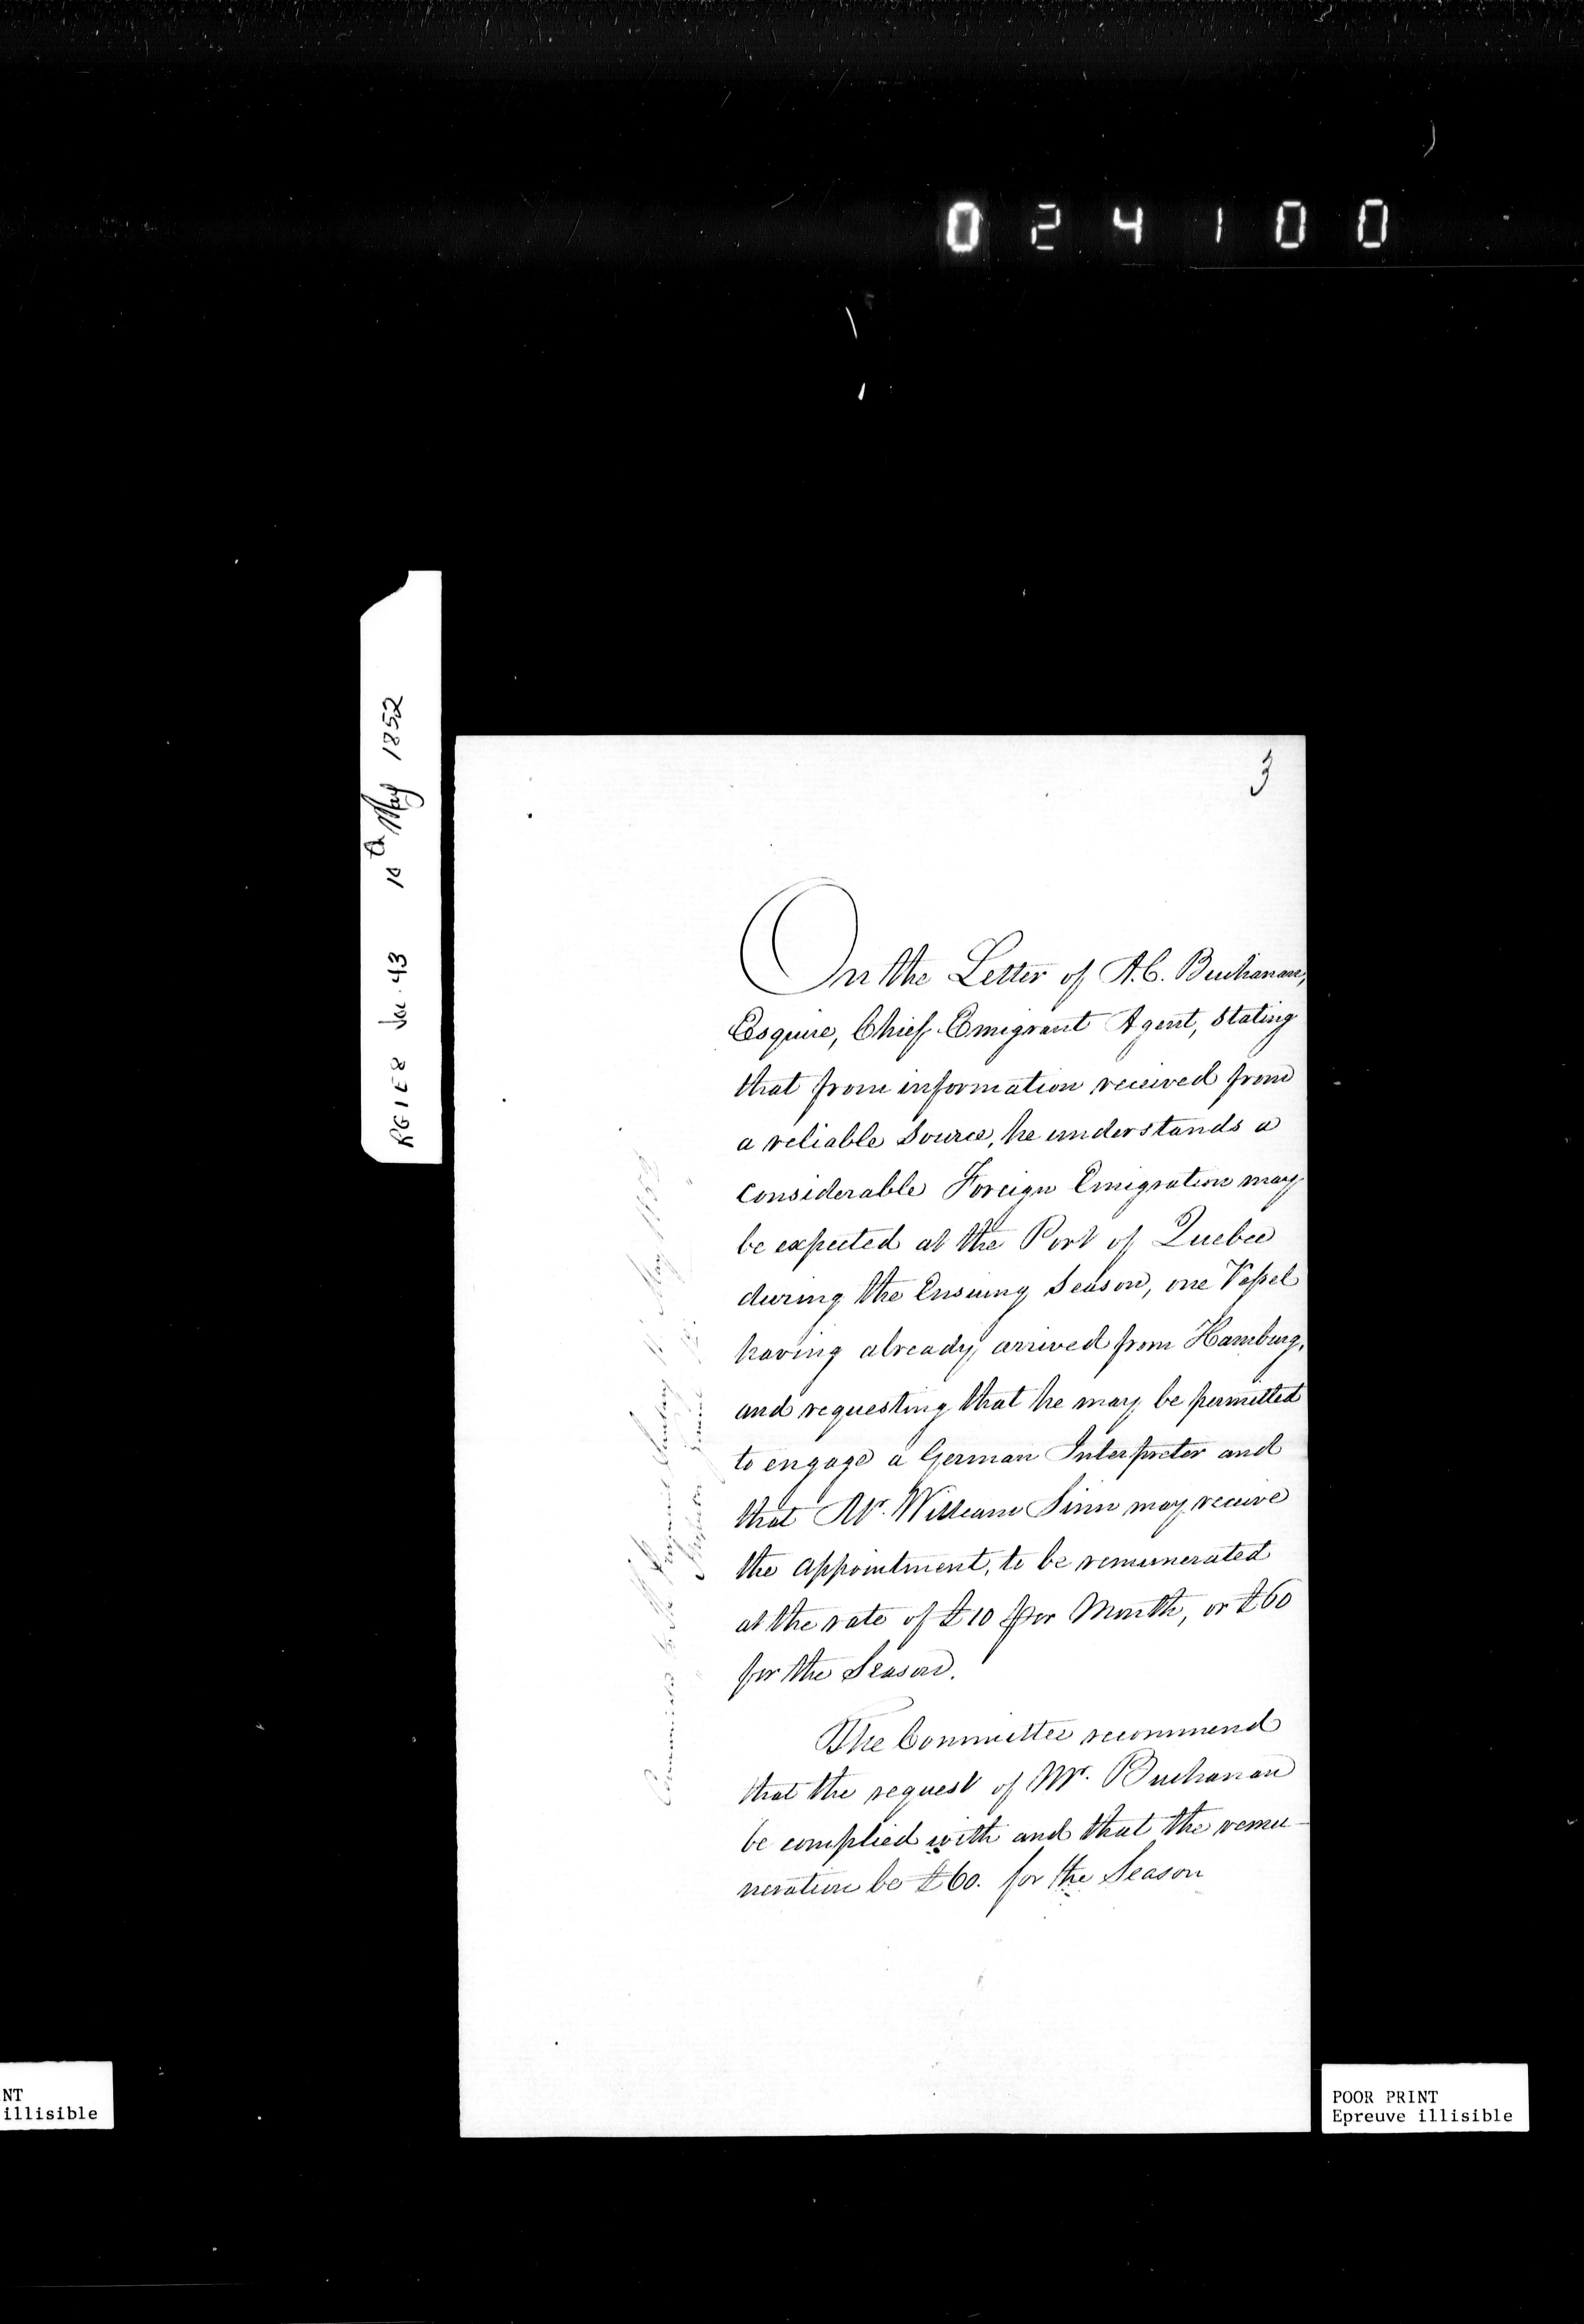 024100
RG1E8 Vol. 43 10th May 1852
3
On the Letter of A.C. Buchanan,
Esquire, Chief Emigrant Agent, stating
that from information received from
a reliable source, he understands a
considerable Foreign Emigration may
be expected at the Port of Quebec
during the Ensuing Season, one Vessel
having already arrived from Hamburg,
and requesting that he may be permitted
to engage a German Interpreter and
that Mr. William Sinn may receive
the appointment, to be remunerated
at the rate of £10 per Month, or £60
for the Season.
The Committee recommend
that the request of Mr. Buchanan
be complied with and that the remu-
neration be £60. for the Season
NT
illisible
POOR PRINT
Epreuve illisible